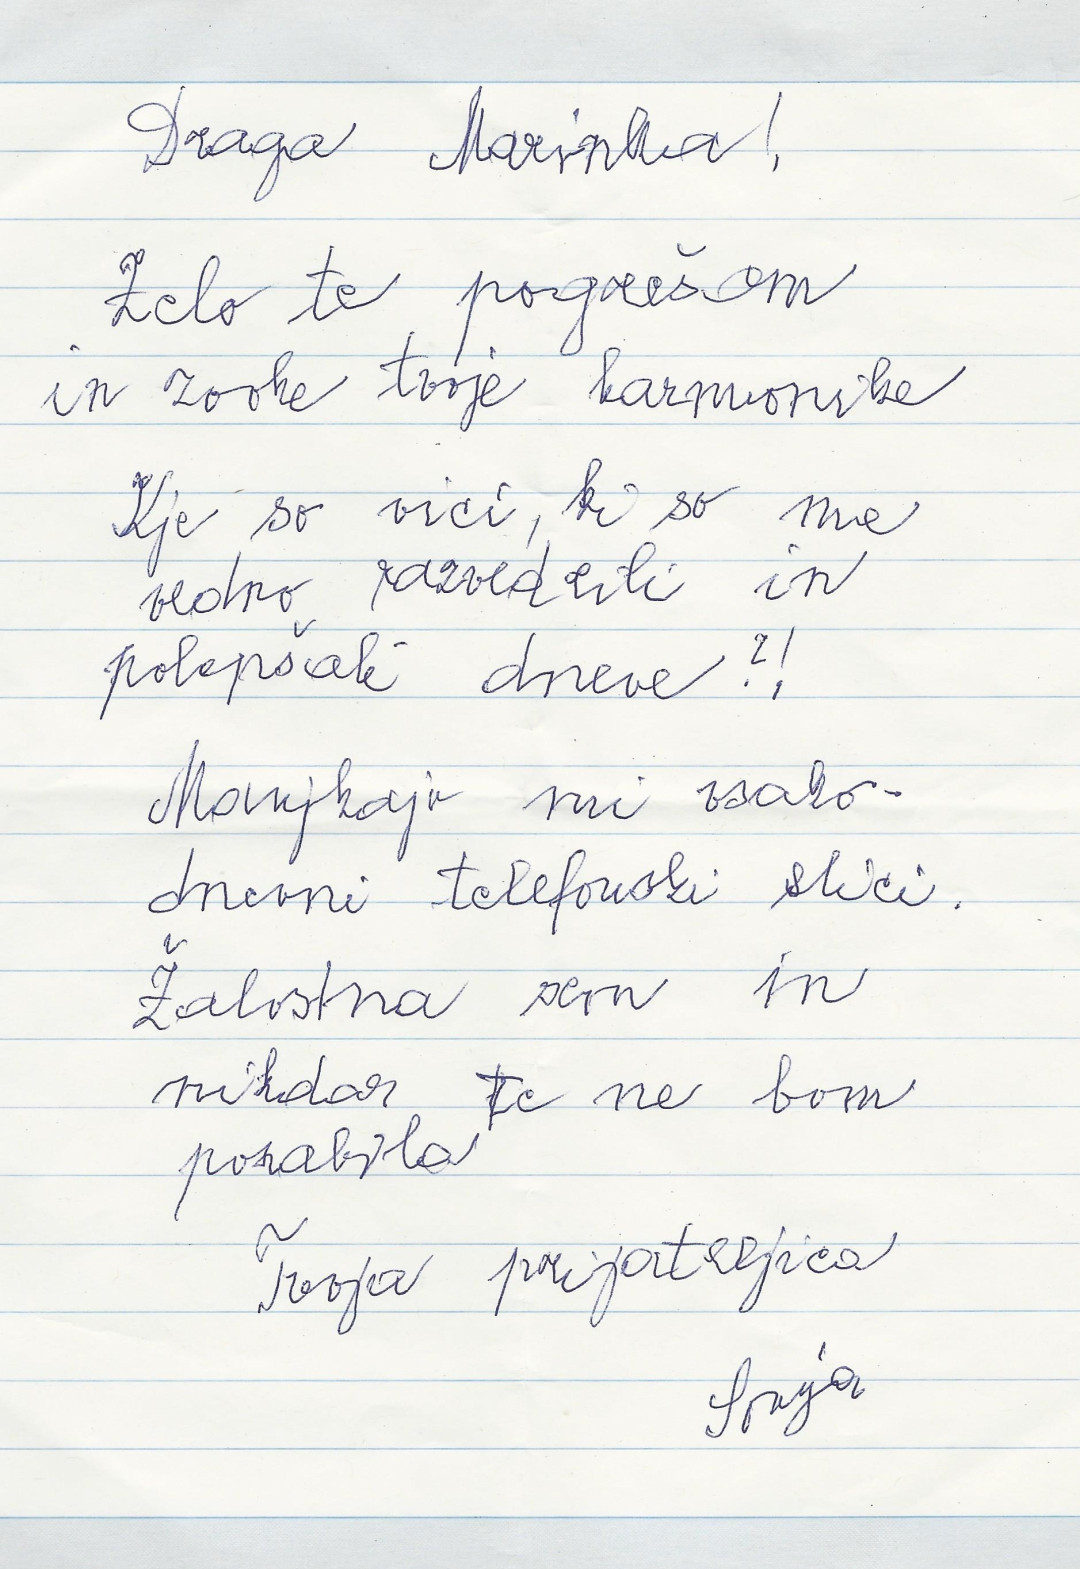 Draga Marinka!
Zelo te pogrešam
in zvoke tvoje harmonike
Kje so vici, ki so me
vedno razvedrili in
polepšali dneve?!
Manjkajo mi vsako-
dnevni telefonski klici.
Žalostna sem in
nikdar te ne bom
pozabila
Tvoja prijateljica
Sonja